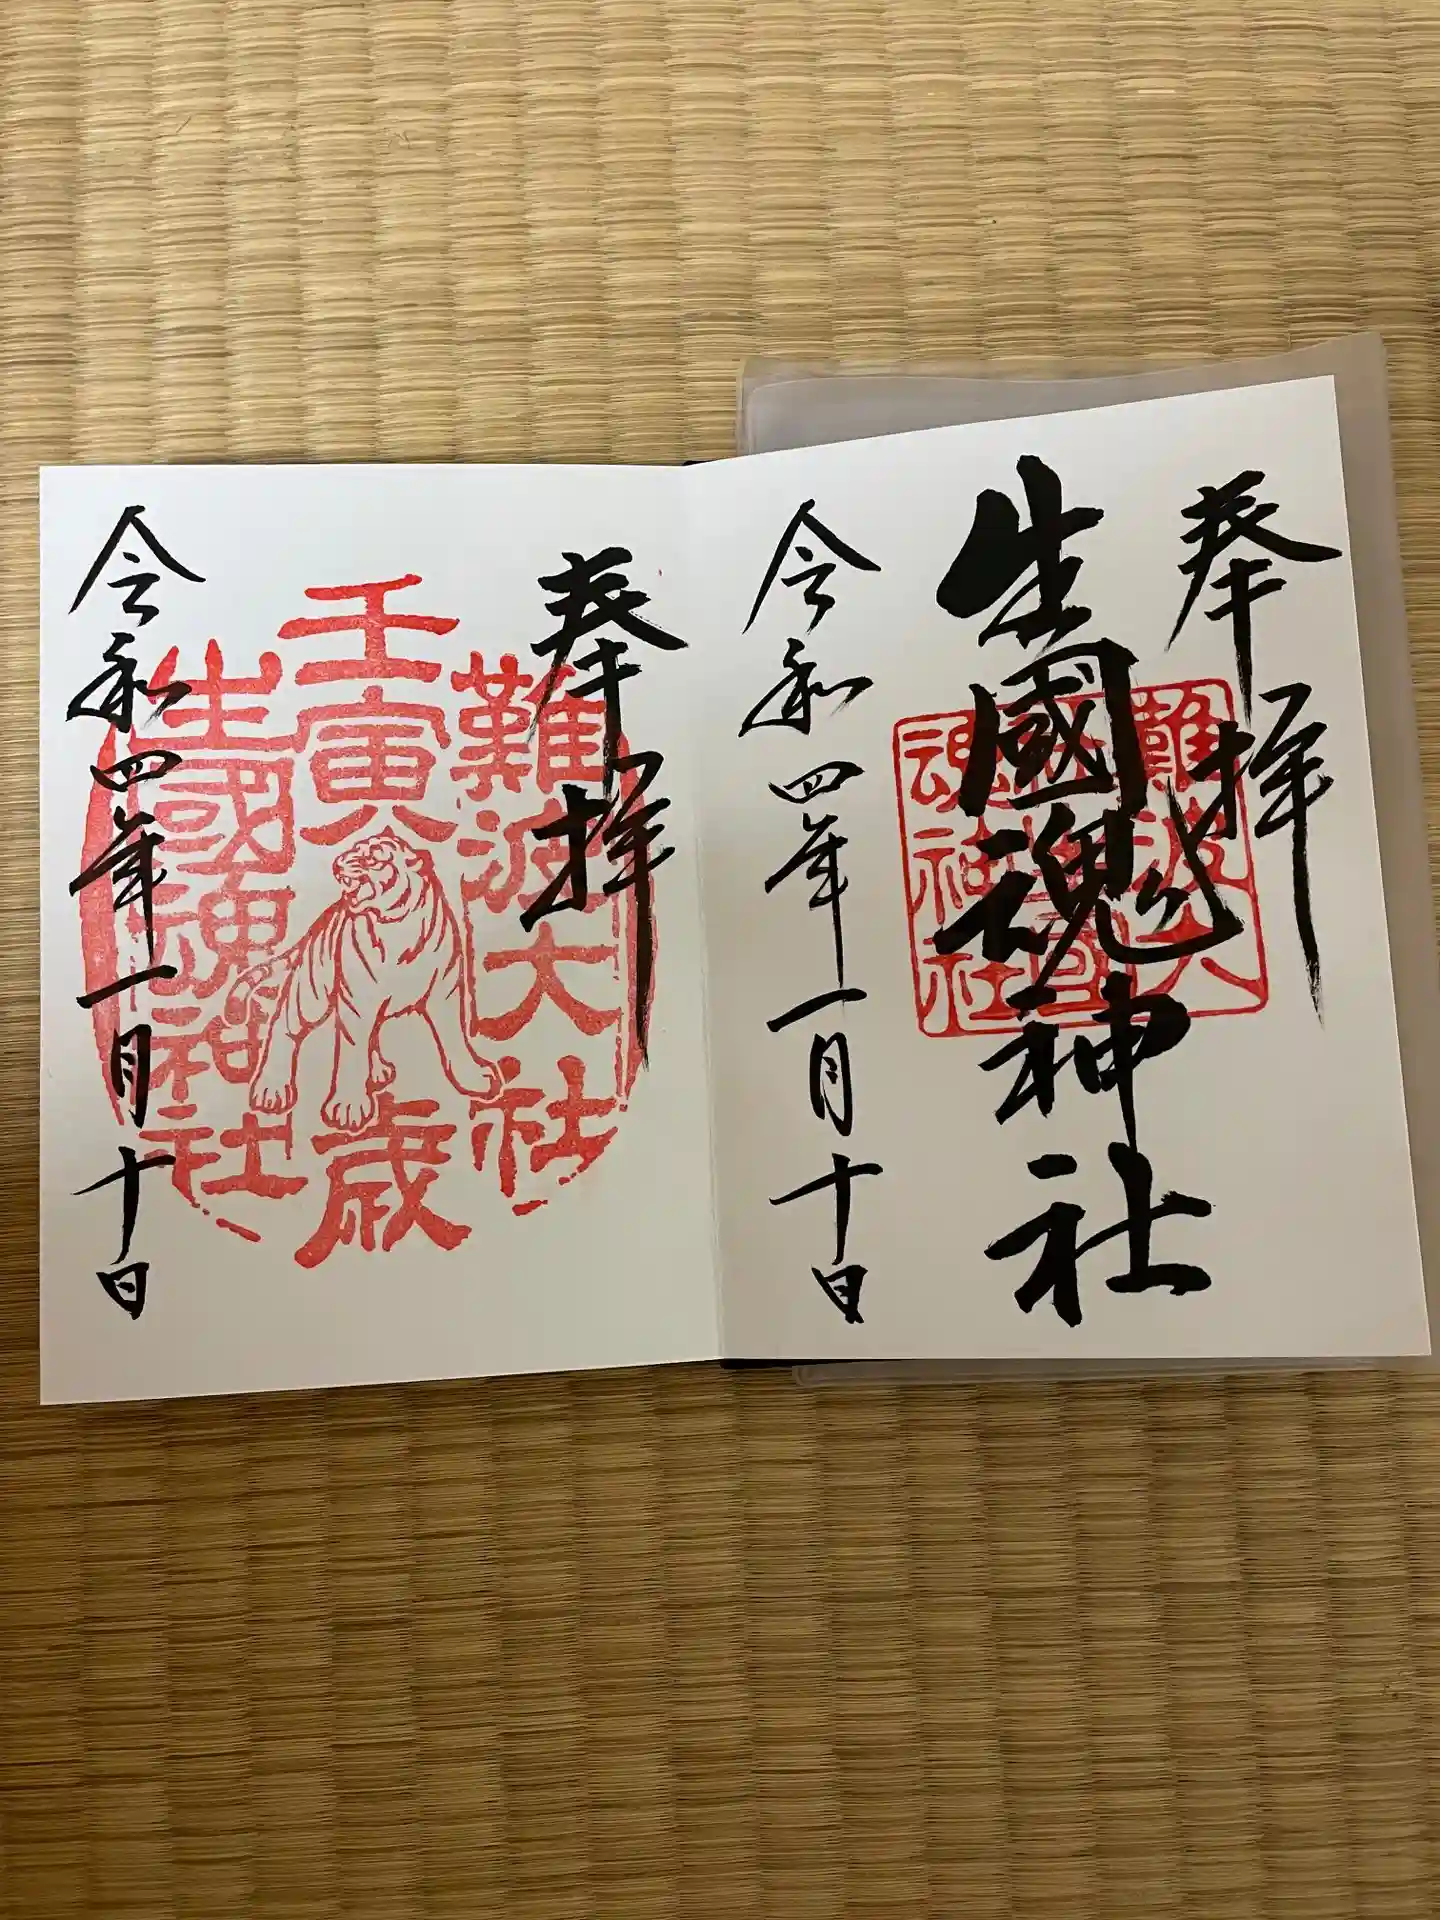 奉拝
難波大社
生國魂神社
生國魂神社
令和四年一月十日
奉拝
難波大社
壬寅歳
生國魂神社
令和四年一月十日